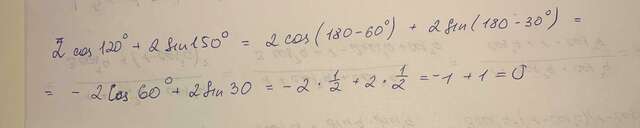 2 cos 120° + 2 sin 150° = 2 cos (180 - 60°) + 2 sin (180 - 30°) =
= - 2 Cos 60° + 2 sin 30 = - 2 · 1/2 + 2 · 1/2 = -1 + 1 = 0